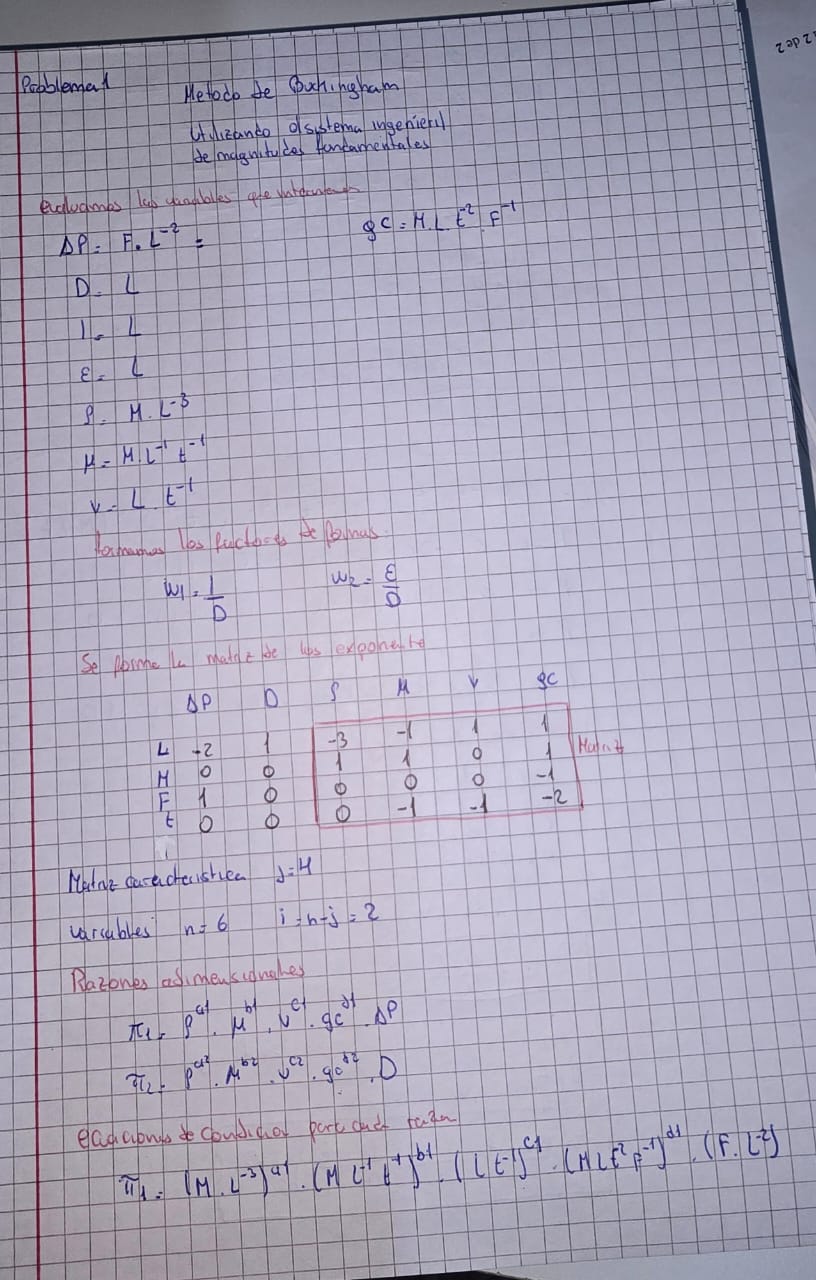 12 de 2
Problema 1
Metodo de Buckingham
Utilizando el sistema ingenieril
de magnitudes fundamentales
evaluamos las variables que intervienen
ΔP = F. L⁻² =
gc = M. L t⁻² F⁻¹
D = L
l = L
ε = L
ρ = M. L⁻³
μ = M. L⁻¹ t⁻¹
v = L. t⁻¹
formamos los factores de formas
W1 = l/D
W2 = ε/D
Se forma la matriz de los exponente
ΔP D ρ M V gc
L -2 1 -3 -1 1 1
M 0 0 1 1 0 1 Matriz
F 1 0 0 0 0 -1
t 0 0 0 -1 -1 -2
Matriz caracteristica j=4
variables n=6 i=n-j=2
Razones adimensionales
π1 = ρᵃ¹. μᵇ¹. vᶜ¹. gcᵈ¹. ΔP
π2 = ρᵃ². μᵇ². vᶜ². gcᵈ². D
ecuaciones de condicion para cada razon
π1 = (M. L⁻³)ᵃ¹. (M L⁻¹ t⁻¹)ᵇ¹. (L t⁻¹)ᶜ¹. (M L t⁻² F⁻¹)ᵈ¹. (F. L⁻²)